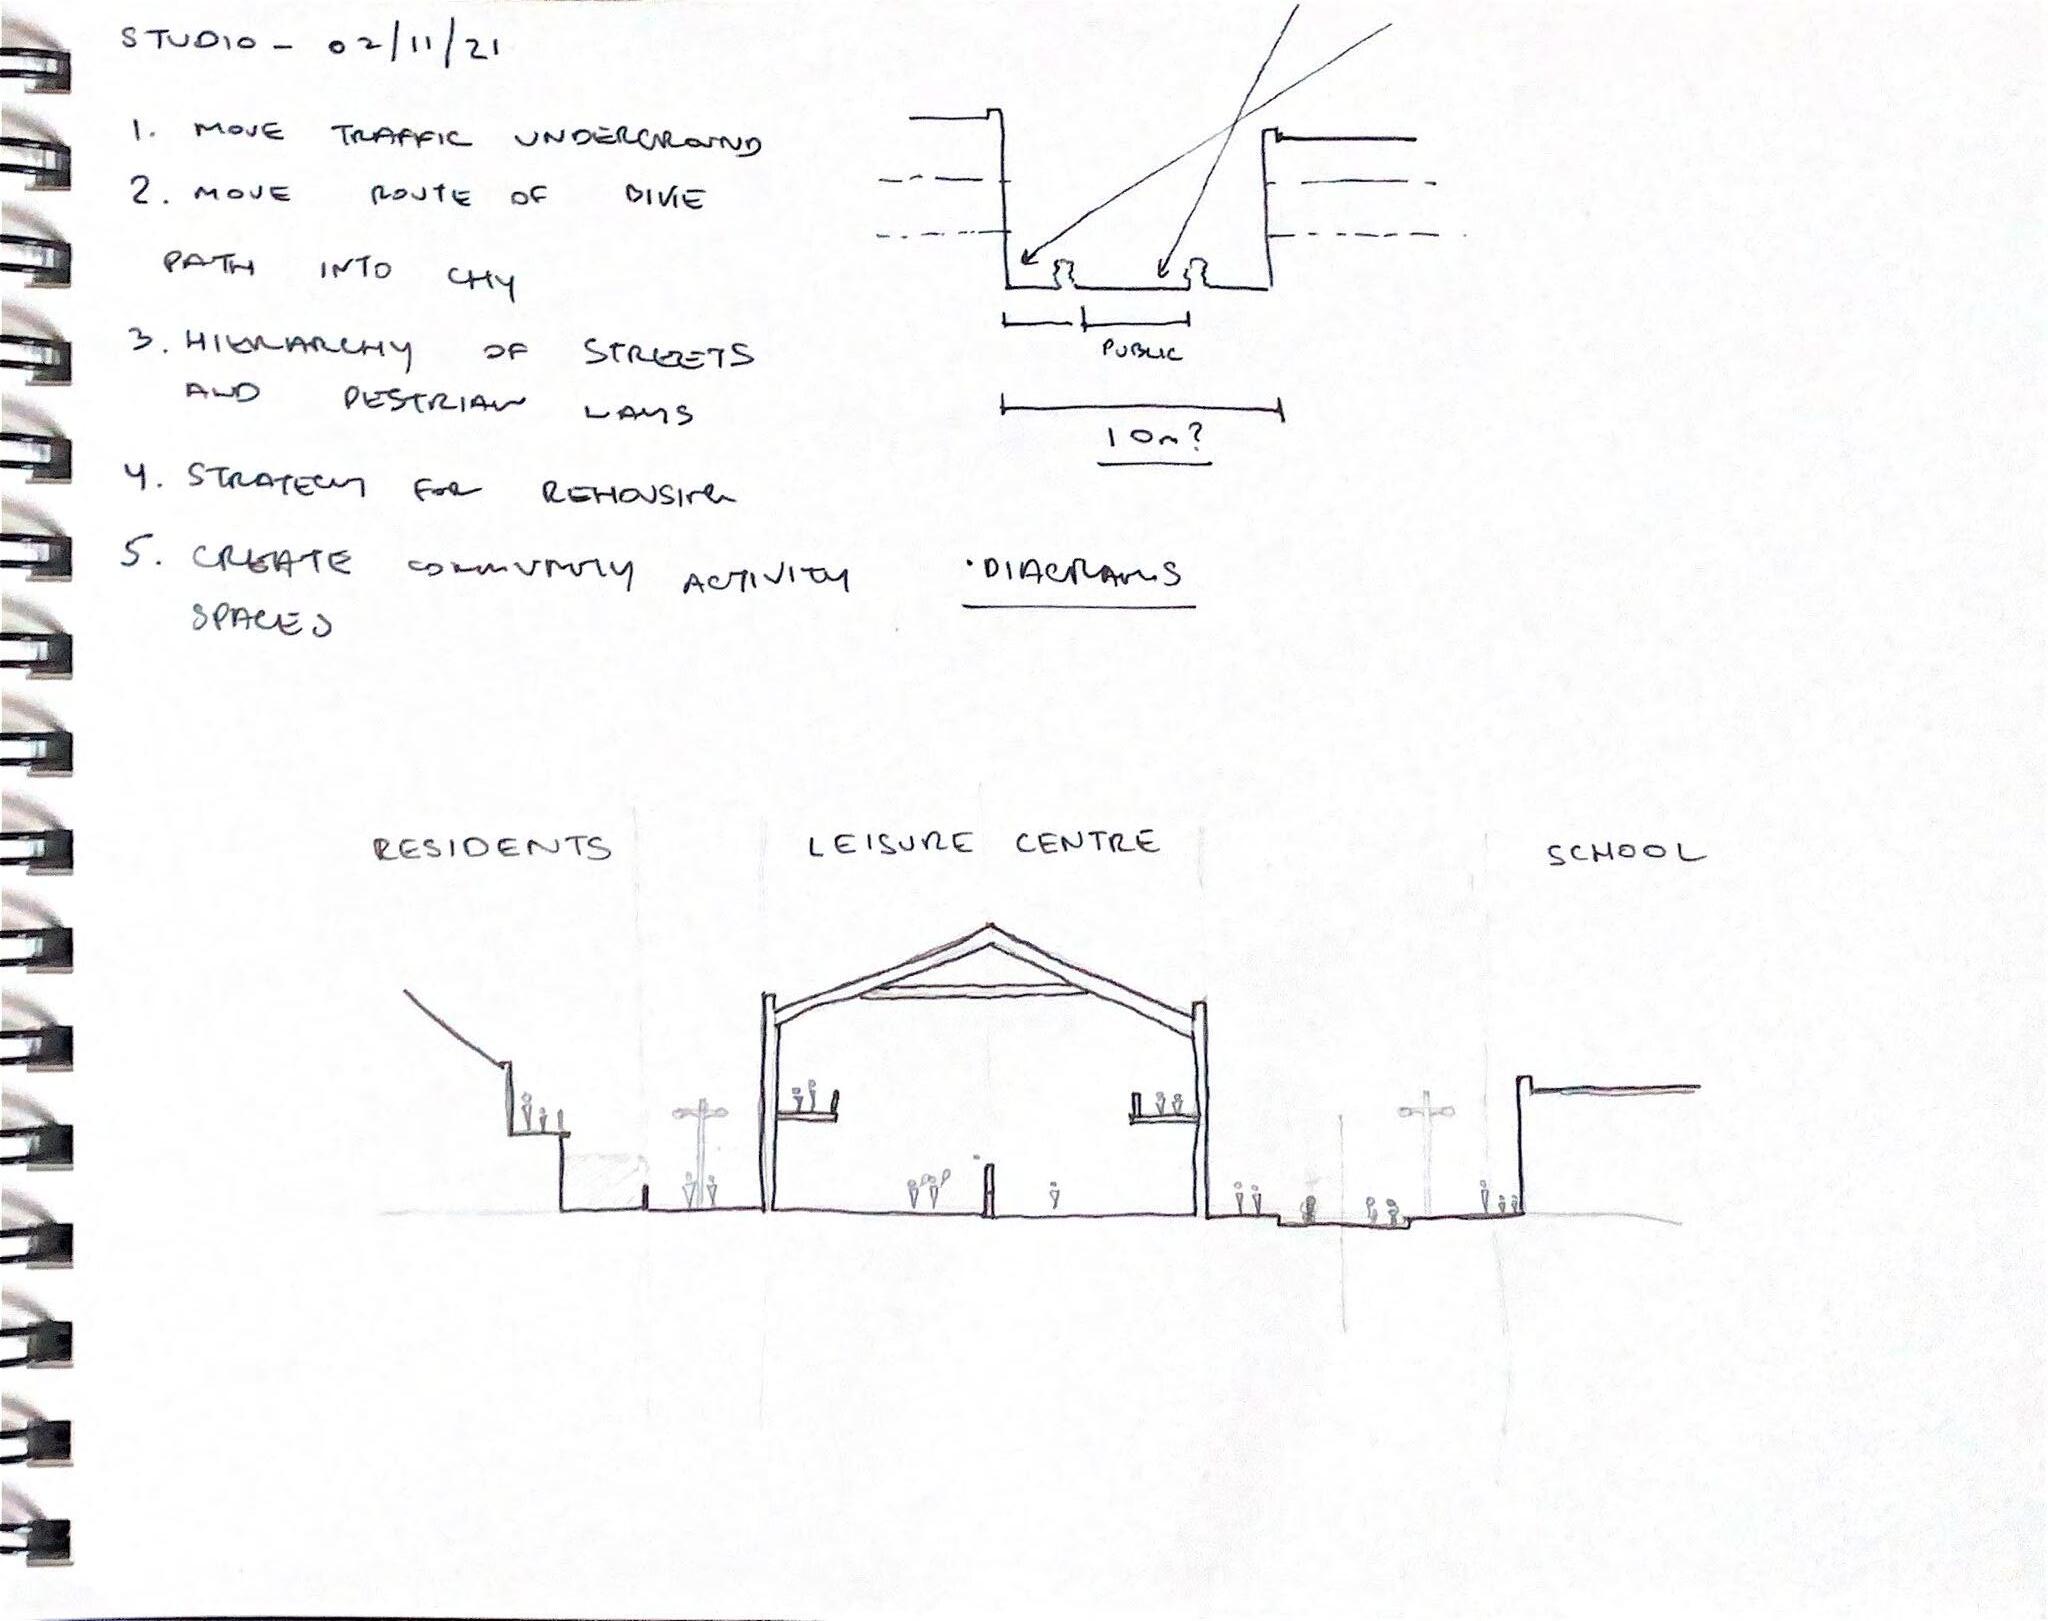 STUDIO - 02/11/21
1. MOVE TRAFFIC UNDERGROUND
2. MOVE ROUTE OF BIKE
PATH INTO CITY
3. HIERARCHY OF STREETS
AND PESTRIAN WAYS
4. STRATEGY FOR REHOUSING
5. CREATE COMMUNITY ACTIVITY
SPACES
PUBLIC
10m?
· DIAGRAMS
RESIDENTS LEISURE CENTRE SCHOOL